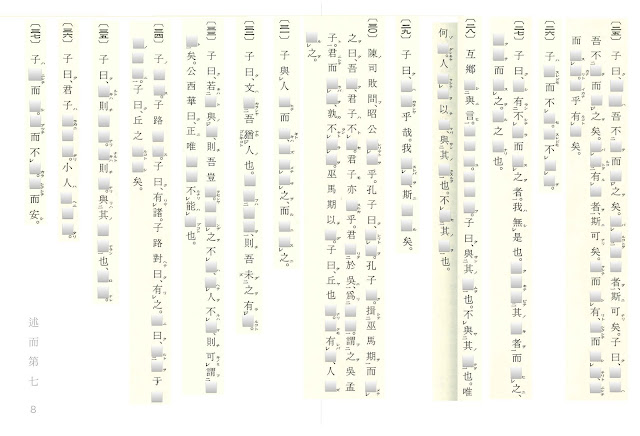 〔二五〕子曰、吾不而之矣。者、斯可矣。子曰、
吾不而之矣。有者、斯可矣。而有、而、
而乎有矣。
〔二六〕子而不。不。
〔二七〕子曰、有不而之者。我無是也。其者而之、
而之、之也。
〔二八〕互鄉與言。子曰、與其也。不與其也。唯
何。人以、與其也。不其也。
〔二九〕子曰、乎哉。我斯矣。
〔三〇〕陳司敗問、昭公乎。孔子曰、。孔子。揖巫馬期而
之曰、吾君子不。君子亦乎。君於吳、爲。謂之吳孟
子。君而、孰不。巫馬期以。子曰、丘也。有、人
之。
〔三一〕子與人而、之、而之。
〔三二〕子曰、文吾猶人也。則吾未之有。
〔三三〕子曰、若與、則吾豈。之不、人不、則可謂
矣。公西華曰、正唯不能也。
〔三四〕子。子路。子曰、有諸。子路對曰、有之。曰、于
。子曰、丘之矣。
〔三五〕子曰、則、則。與其也、。
〔三六〕子曰、君子。小人。
〔三七〕子而。而不。而安。
述而第七
8